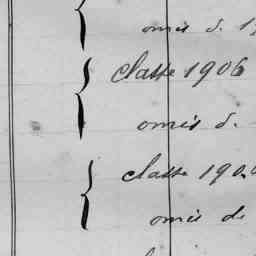 omis d. 1
Classe 1906
omis d.
Classe 190
omis de